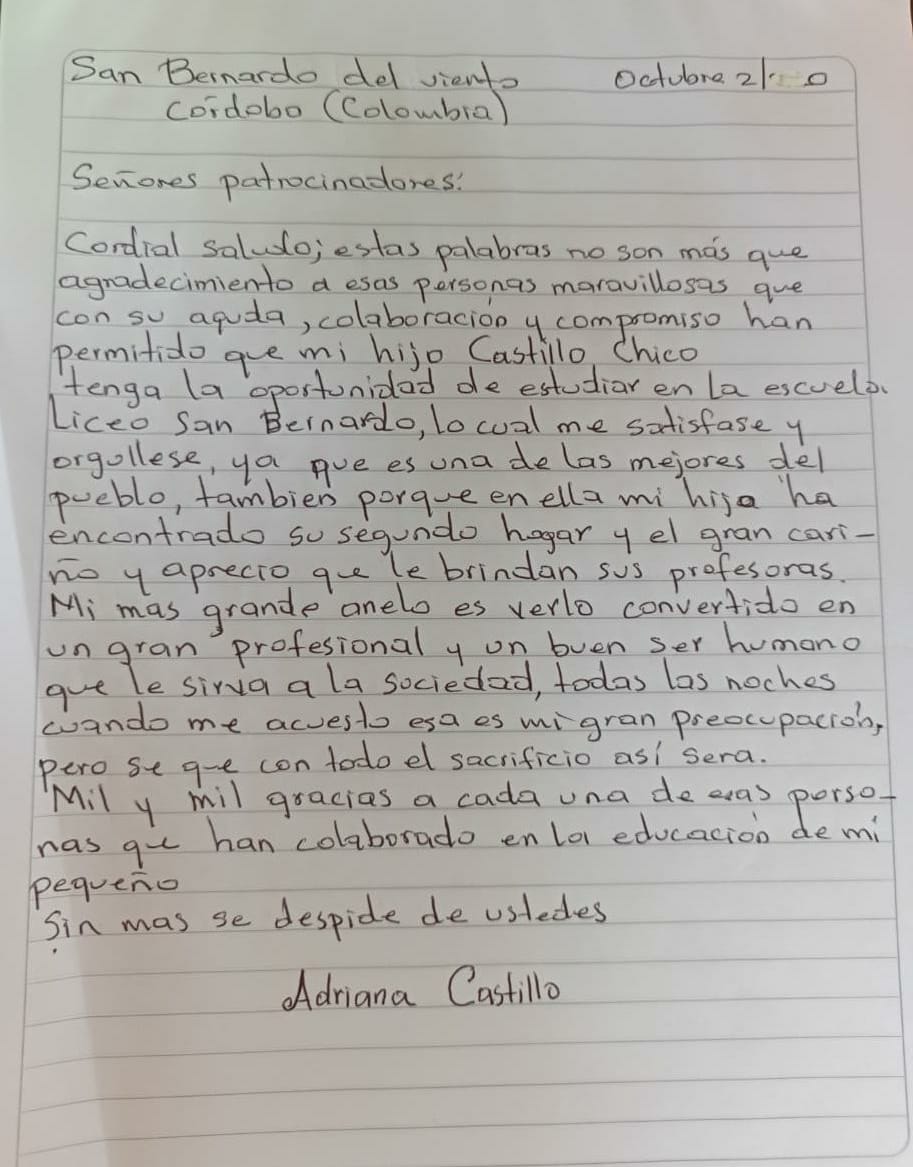 San Bernardo del viento Octubre 21
Córdoba (Colombia)
Señores patrocinadores:
Cordial saludo; estas palabras no son más que
agradecimiento a esas personas maravillosas que
con su aquda, colaboración y compromiso han
permitido que mi hijo Castillo Chico
tenga la oportunidad de estudiar en la escuela.
Liceo San Bernardo, lo cual me satisfase y
orgullese, ya que es una de las mejores del
pueblo, tambien porque en ella mi hijo ha
encontrado su segundo hogar y el gran cari-
ño y aprecio que le brindan sus profesoras.
Mi mas grande anelo es verlo convertido en
un gran profesional y un buen ser humano
que le sirva a la sociedad, todas las noches
cuando me acuesto esa es mi gran preocupación,
pero se que con todo el sacrificio así sera.
Mil y mil gracias a cada una de esas perso-
nas que han colaborado en la educación de mi
pequeño
Sin mas se despide de ustedes
Adriana Castillo